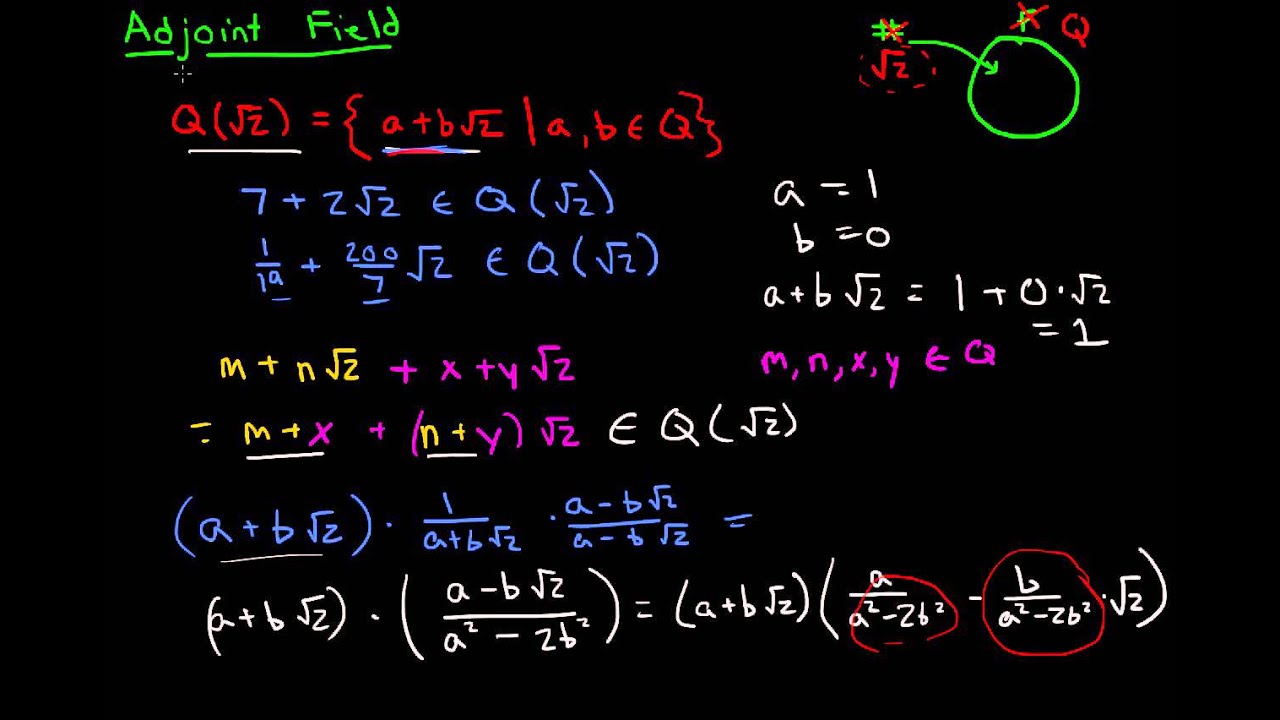 Adjoint Field
# F Q
√2
Q(√2) = { a+b√2 | a, b ∈ Q }
7 + 2√2 ∈ Q(√2)
a = 1
b = 0
1/19 + 200/7 √2 ∈ Q(√2)
a+b√2 = 1 + 0·√2
= 1
m + n√2 + x + y√2
m, n, x, y ∈ Q
= m+x + (n+y)√2 ∈ Q(√2)
(a+b√2) · 1/(a+b√2) · (a-b√2)/(a-b√2) =
(a+b√2) · ((a-b√2)/(a²-2b²)) = (a+b√2)(a/(a²-2b²) - b/(a²-2b²)·√2)